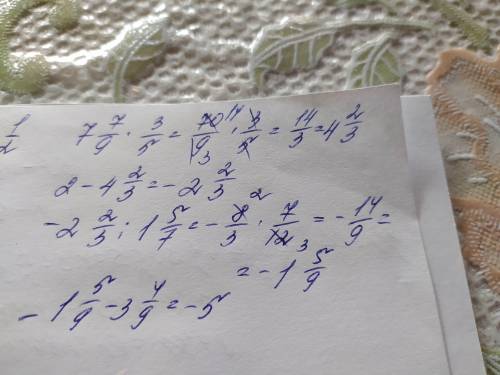 1/2
7 7/9 · 3/5 = 70/9 · 3/5 = 14/3 = 4 2/3
14 3
2 - 4 2/3 = -2 2/3
-2 2/3 : 1 5/7 = - 8/3 · 7/12 = - 14/9 =
2 3
= -1 5/9
-1 5/9 - 3 4/9 = -5